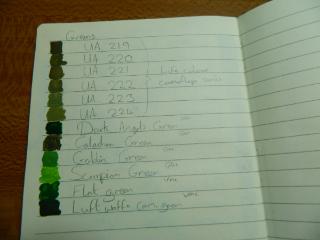 Greens
UA 219
UA 220
UA 221
UA 222
UA 223
UA 224
Late colour
camouflage series
Dark Angels Green
Caladian Green
Goblin Green
Scorpion Green
Flat green
Luftwaffe cam. green